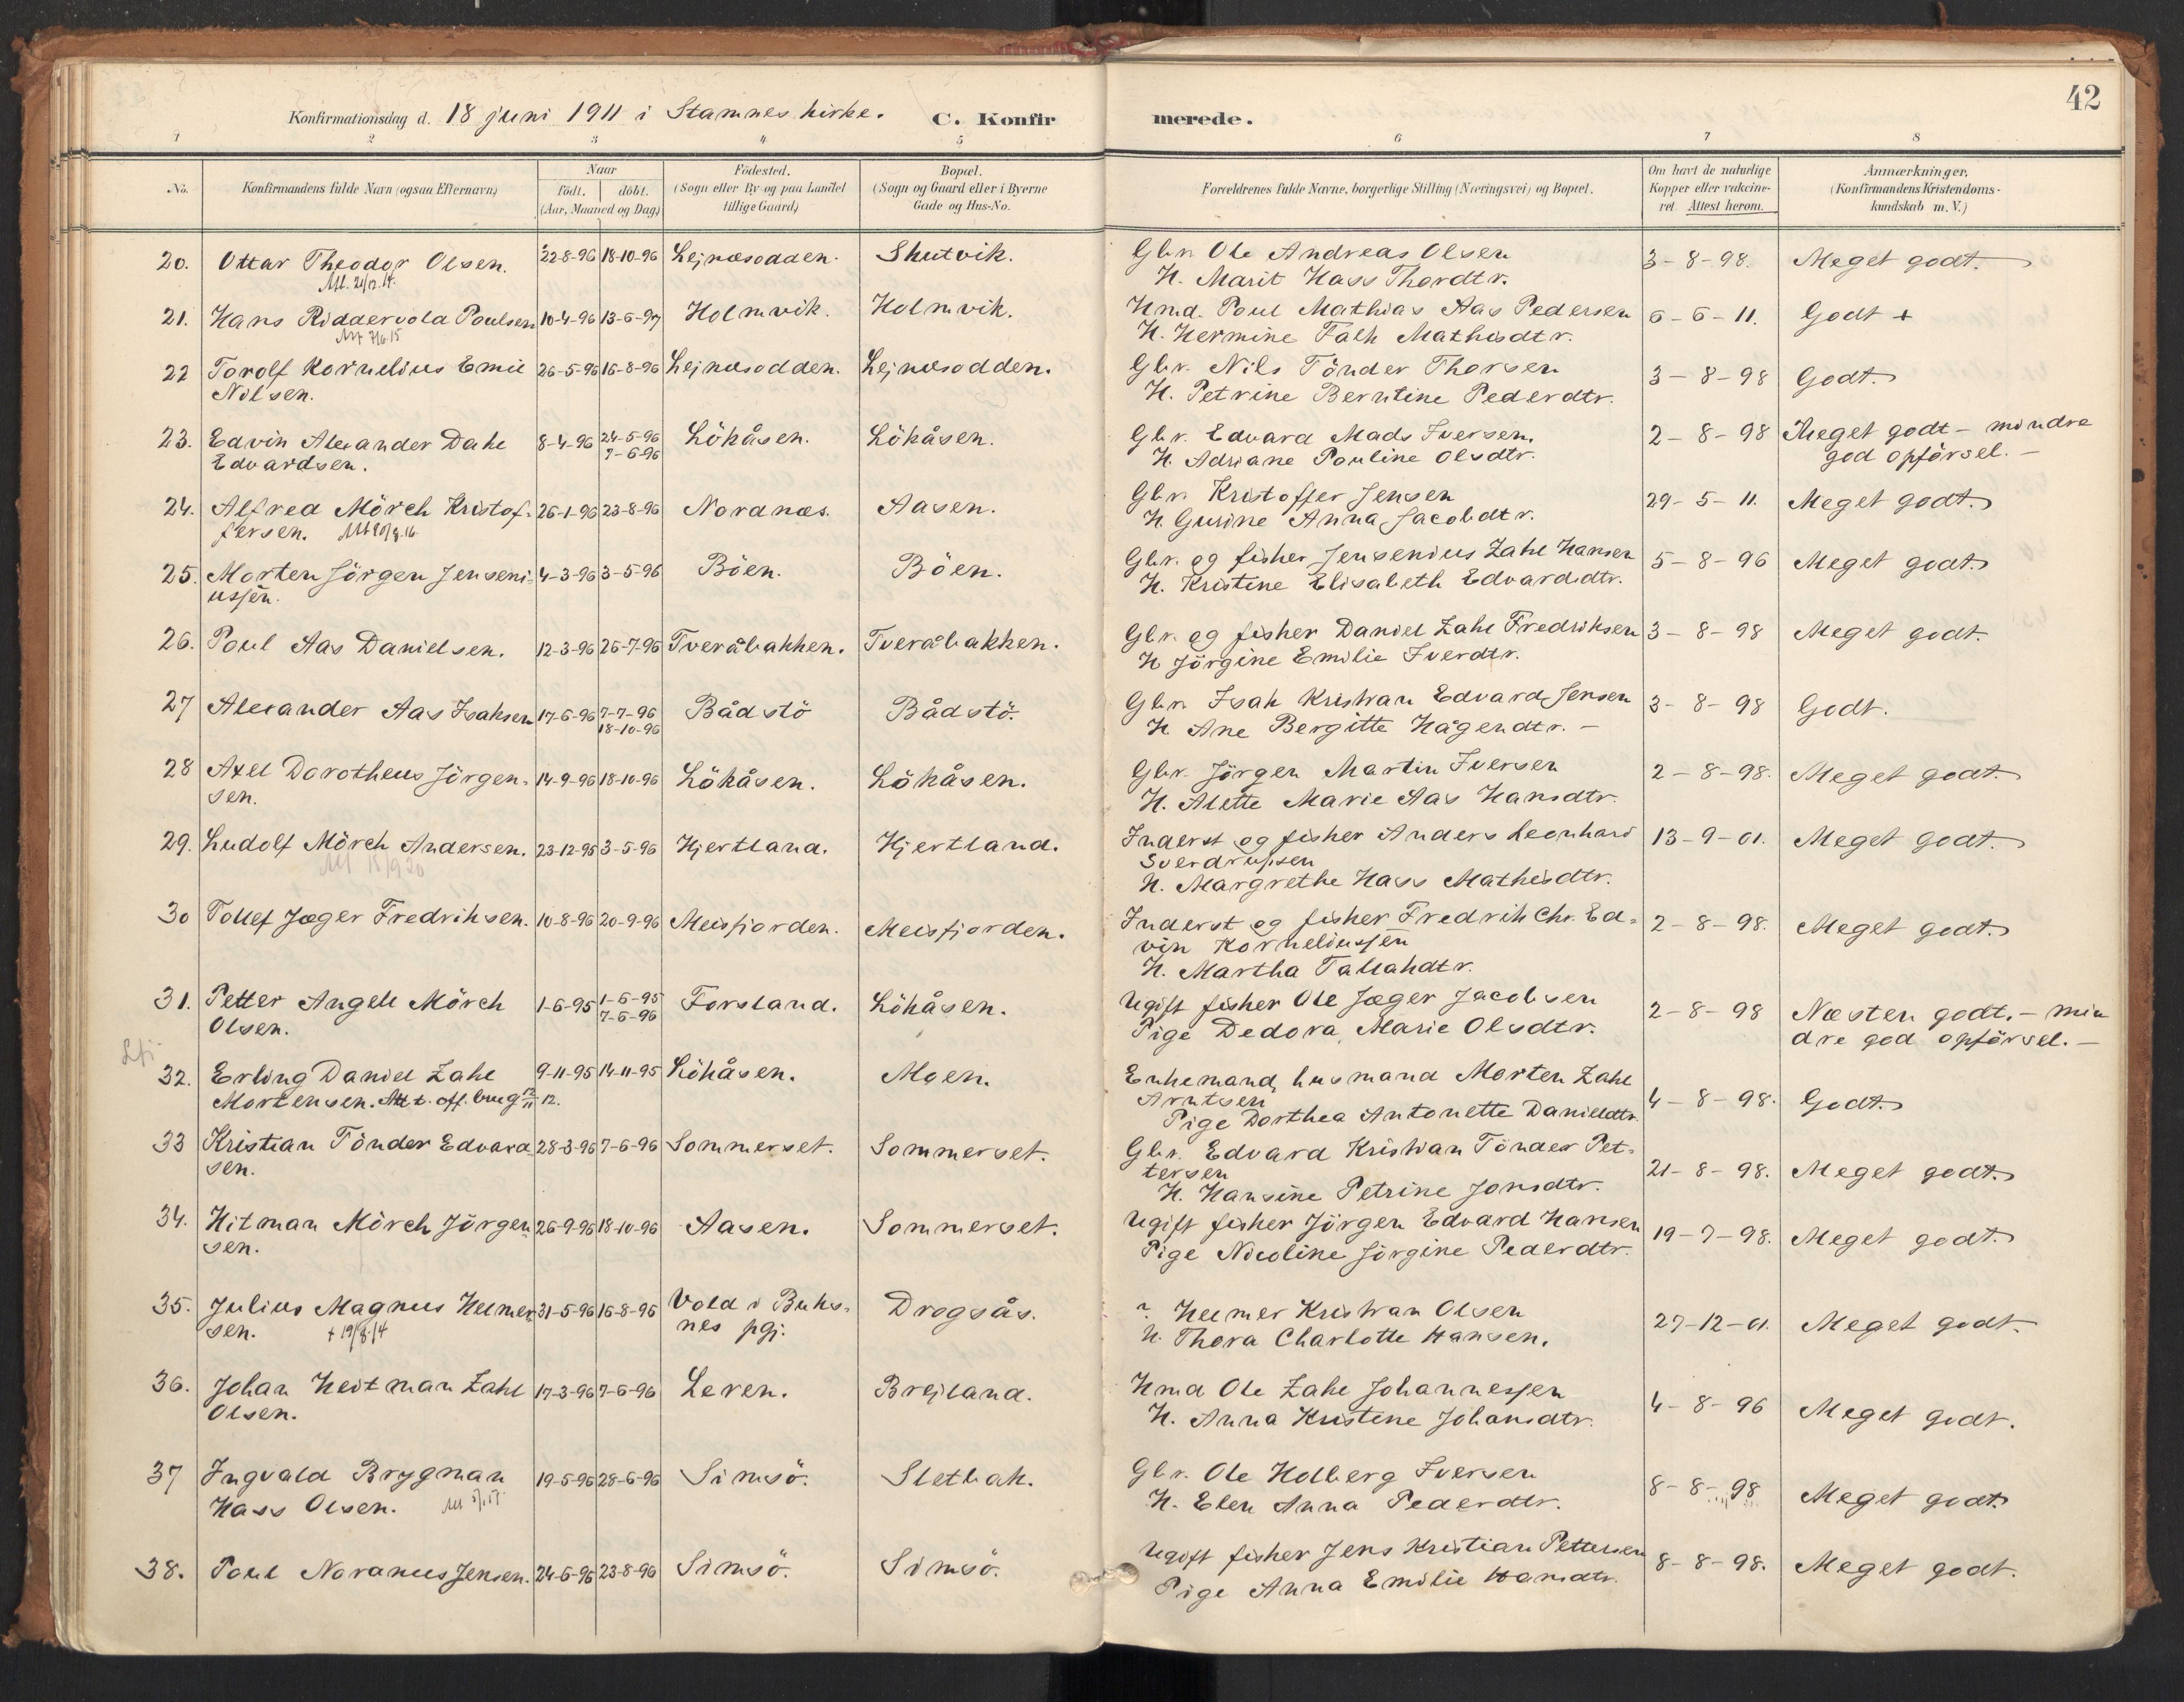 42
Konfirmationsdag d. 18 juni 1911 i Stamnes kirke. C. Konfirmerede.
1 2 3 4 5 6 7 8
No. Konfirmandens fulde Navn (ogsaa Efternavn) Naar födt. döbt. (Aar, Maaned og Dag) Födested. (Sogn eller By og paa Landet tillige Gaard) Bopæl. (Sogn og Gaard eller i Byerne Gade og Hus-No. Forældrenes fulde Navne, borgerlige Stilling (Næringsvei) og Bopæl. Om havt de naturlige Kopper eller vakcineret. Attest herom. Anmærkninger. (Konfirmandens Kristendomskundskab m. V.)
20. Ottar Theodor Olsen. 22-8-96 18-10-96 Lejnesodden. Skutvik. Gbr. Ole Andreas Olsen 3-8-98. Meget godt.
H. Marit Hass Thordtr.
21. Hans Riddervold Poulsen 10-4-96 13-6-97 Holmvik. Holmvik. Hmd. Poul Mathias Aas Pedersen 6-6-11. Godt +
H. Hermine Falk Mathisdtr.
22 Torolf Kornelius Emil 26-5-96 16-8-96 Lejnesodden. Lejnesodden. Gbr. Nils Tönder Thorsen 3-8-98 Godt.
Nilsen. H. Petrine Berntine Pederdtr.
23. Edvin Alexander Dahl 8-4-96 24-5-96 Lökåsen. Lökåsen. Gbr. Edvard Mads Iversen. 2-8-98 Meget godt - mindre
Edvardsen. 7-6-96 H. Adriane Pouline Olsdtr. god opförsel. -
24. Alfred Mörch Kristof- 26-1-96 23-8-96 Nordnæs. Aasen. Gbr. Kristoffer Jensen 29-5-11. Meget godt.
fersen. H. Gurine Anna Jacobdtr.
25. Morten Jörgen Jenseni- 4-3-96 3-5-96 Böen. Böen. Gbr. og fisker Jensenius Zahl Hansen 5-8-96 Meget godt.
ussen. H. Kristine Elisabeth Edvardsdtr.
26. Poul Aas Danielsen. 12-3-96 26-7-96 Tveråbakken. Tveråbakken. Gbr. og fisker Daniel Zahl Fredriksen 3-8-98 Meget godt.
H Jörgine Emilie Iverdtr.
27 Alexander Aas Isaksen 17-6-96 7-7-96 Bådstö Bådstö. Gbr. Isak Kristian Edvard Jensen 3-8-98 Godt.
18-10-96 H. Ane Bergitte Hågendtr. -
28 Axel Dorotheus Jörgen- 14-9-96 18-10-96 Lökåsen. Lökåsen. Gbr. Jörgen Martin Iversen 2-8-98. Meget godt.
sen. H. Alette Marie Aas Hansdtr.
29. Ludolf Mörch Andersen. 23-12-95 3-5-96 Hjertland. Hjertland. Inderst og fisker Anders Leonhard 13-9-01. Meget godt.
Sverdrupsen
H. Margrethe Hass Mathisdtr.
30 Tollef Jæger Fredriksen. 10-8-96 20-9-96 Meisfjorden. Meisfjorden. Inderst og fisker Fredrik Chr. Ed- 2-8-98. Meget godt.
vin Korneliussen
H. Martha Tallahdtr.
31. Petter Angell Mörch 1-6-95 1-6-95 Forsland. Lökåsen. Ugift fisker Ole Jæger Jacobsen 2-8-98 Næsten godt. - min
Olsen. 7-6-96 Pige Dedora Marie Olsdtr. dre god opförsel. -
32. Erling Daniel Zahl 9-11-95 14-11-95 Lökåsen. Moen. Enkemand, husmand Morten Zahl 4-8-98. Godt.
Mortensen. Att t. off. brug 12/11 12. Arntsen
Pige Dorthea Antonette Danieldtr.
33 Kristian Tönder Edvard 28-3-96 7-6-96 Sommerset. Sommerset. Gbr. Edvard Kristian Tönder Pet- 21-8-98. Meget godt.
sen. tersen
H. Hansine Petrine Jonsdtr.
34. Hitman Mörch Jörgen 26-9-96 18-10-96 Aasen. Sommerset. Ugift fisker Jörgen Edvard Hansen 19-7-98. Meget godt.
sen. Pige Nicoline Jörgine Pederdtr.
35. Julius Magnus Helmer- 31-5-96 16-8-96 Vold i Buks- Drogsås. ? Helmer Kristian Olsen 27-12-01. Meget godt.
sen. + 19/8.14 nes pgj. H. Thora Charlotte Hansen.
36. Johan Heitman Zahl 17-3-96 7-6-96 Leren. Brejland. Hmd Ole Zahl Johannessen 4-8-96 Meget godt.
Olsen. H. Anna Kristine Johansdtr.
37 Ingvald Brygman 19-5-96 28-6-96 Simsö. Sletbak. Gbr. Ole Holberg Iversen 8-8-98 Meget godt.
Hass Olsen. H. Elen Anna Pederdtr.
38. Poul Nordnes Jensen. 24-6-96 23-8-96 Simsö. Simsö. Ugift fisker Jens Kristian Pettersen 8-8-98. Meget godt.
Pige Anna Emilie Hansdtr.